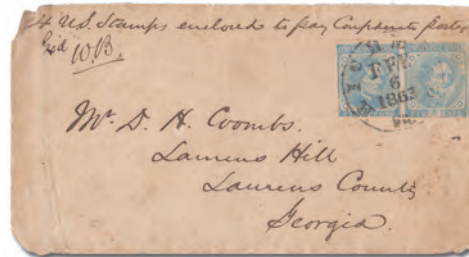 4 U.S. Stamps enclosed to pay Confederate Postage
W.B.
RICHM
FEB
6
1863
Mr. D. H. Coombs.
Laurens Hill
Laurens County
Georgia.